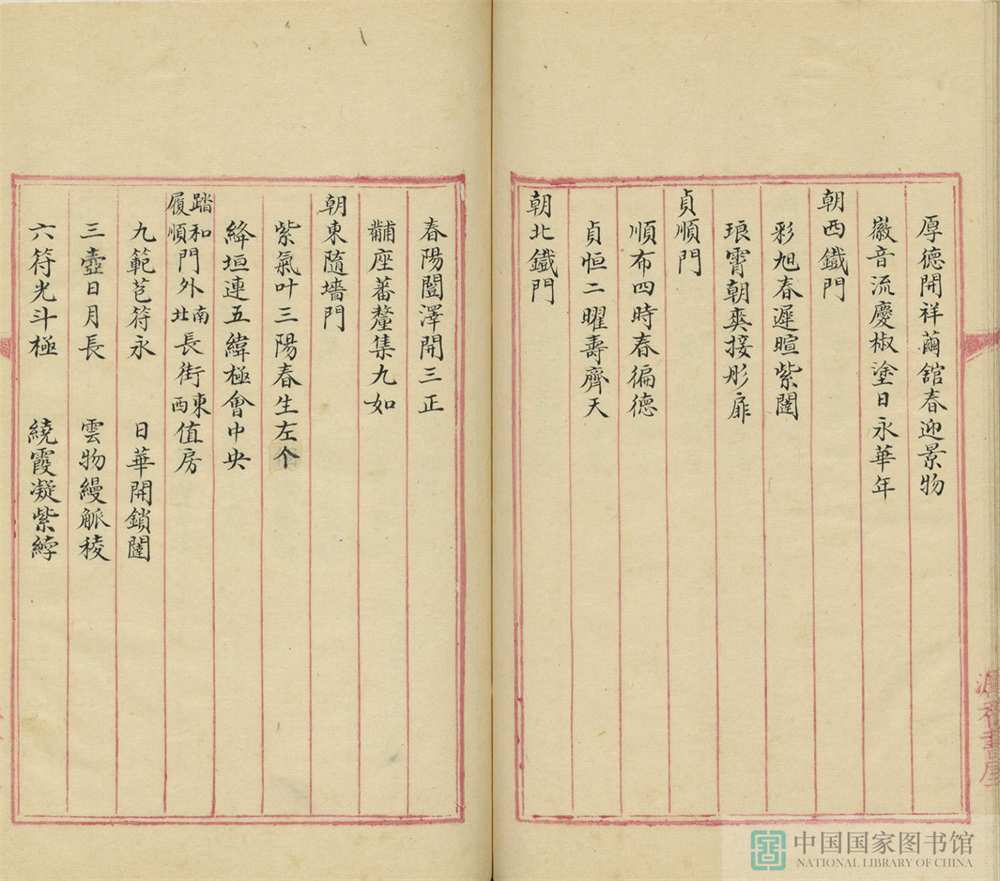 厚德開祥繭舘春迎景物
徽音流慶椒塗日永華年
朝西鐵門
彩旭春遲暄紫闥
琅霄朝爽接彤扉
貞順門
順布四時春徧德
貞恒二曜壽齊天
朝北鐵門
春陽闓澤開三正
黼座蕃釐集九如
朝東隨墻門
紫氣叶三陽春生左个
絳垣連五緯極會中央
踏和
履順門外南北長街東西值房
九範苞符永 日華開鎖闥
三壺日月長 雲物縵觚稜
六符光斗極 繞霞凝紫
書屋
中国国家图书馆
NATIONAL LIBRARY OF CHINA